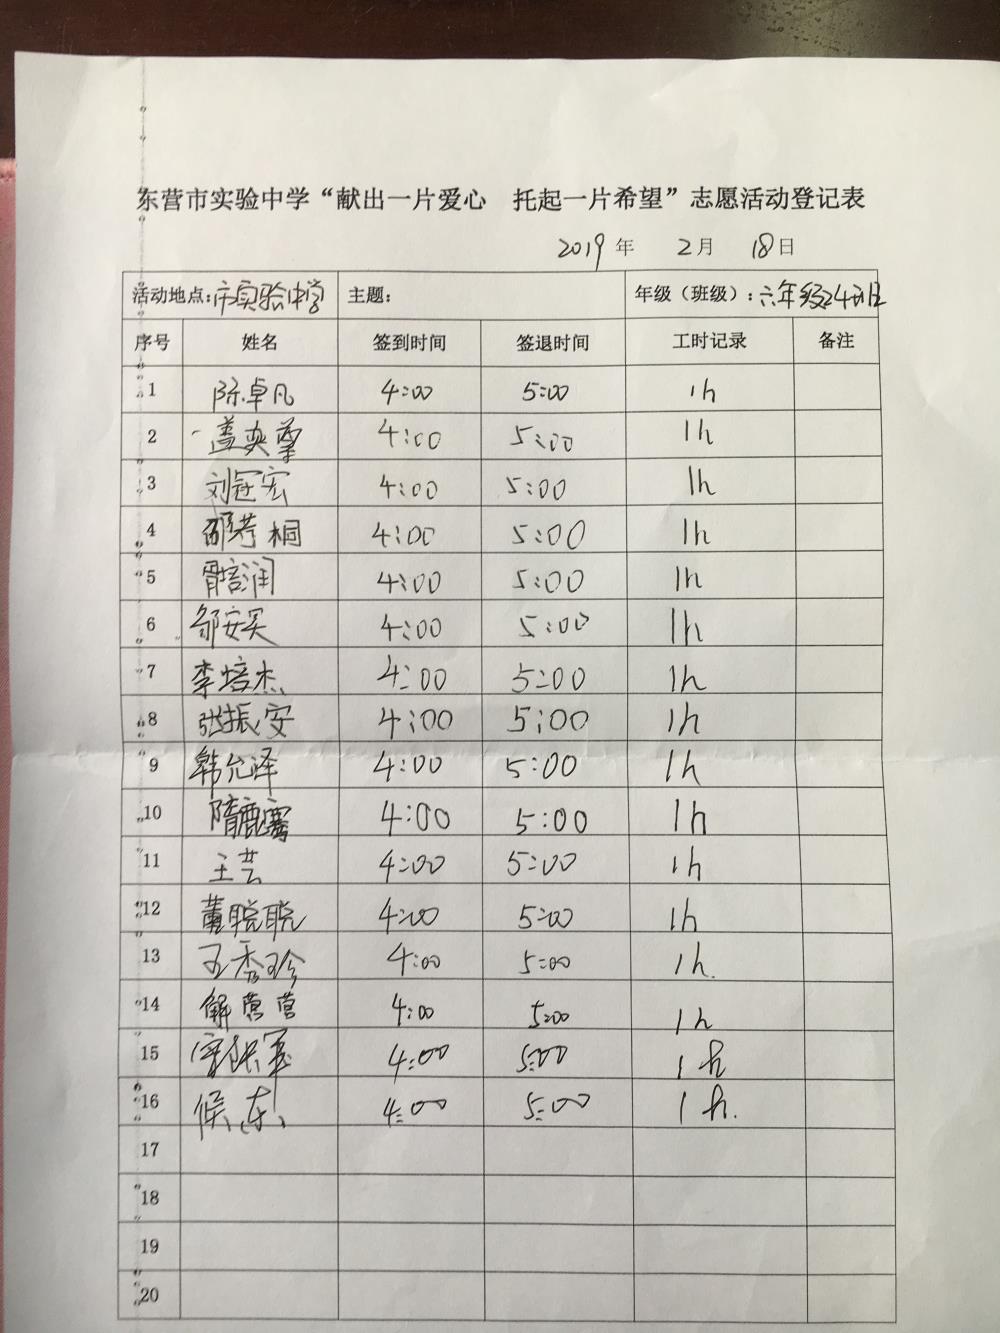 东营市实验中学“献出一片爱心 托起一片希望”志愿活动登记表
2019年 2月 18日
活动地点:市实验中学 主题: 年级（班级）:六年级24班
序号 姓名 签到时间 签退时间 工时记录 备注
1 陈卓凡 4:00 5:00 1h
2 盖奕 4:00 5:00 1h
3 刘冠宏 4:00 5:00 1h
4 4:00 5:00 1h
5 培润 4:00 5:00 1h
6 邹安 4:00 5:00 1h
7 李培杰 4:00 5:00 1h
8 张振安 4:00 5:00 1h
9 韩允泽 4:00 5:00 1h
10 隋鹿骞 4:00 5:00 1h
11 王芸 4:00 5:00 1h
12 董聪聪 4:00 5:00 1h
13 王秀珍 4:00 5:00 1h.
14 解营营 4:00 5:00 1h
15 4:00 5:00 1h
16 侯东 4:00 5:00 1h.
17
18
19
20